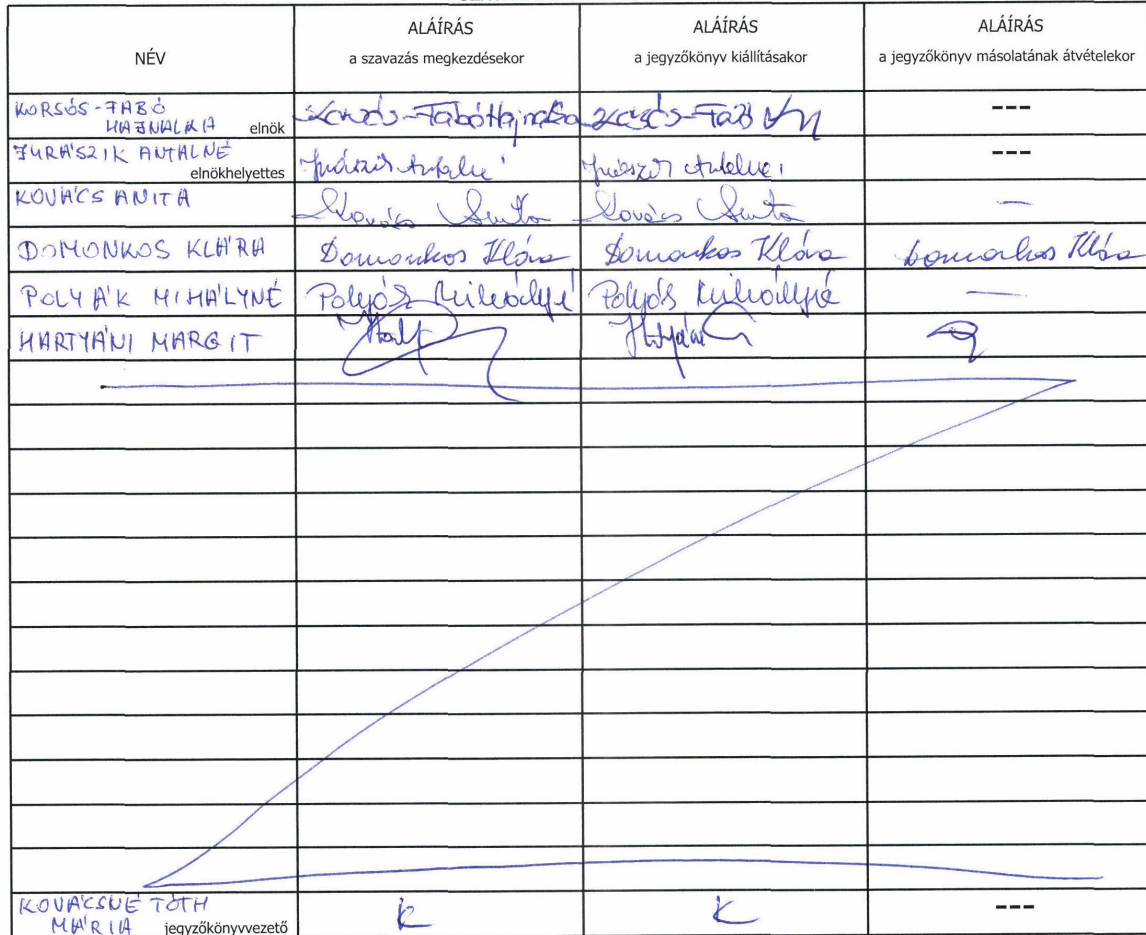 NÉV
ALÁÍRÁS
a szavazás megkezdésekor
ALÁÍRÁS
a jegyzőkönyv kiállításakor
ALÁÍRÁS
a jegyzőkönyv másolatának átvételekor
KORSÓS-FABÓ
HAJNALKA elnök
Korsós-Fabó Hajnalka
---
JURÁSZIK ANTALNÉ
elnökhelyettes
Jurászik Antalné
Jurászik Antalné
---
KOVÁCS ANITA
Kovács Anita
Kovács Anita
—
DOMONKOS KLÁRA
Domonkos Klára
Domonkos Klára
Domonkos Klára
POLYÁK MIHÁLYNÉ
Polyák Mihályné
Polyák Mihályné
—
HARTYÁNI MARGIT
KOVÁCSNÉ TÓTH
MÁRIA jegyzőkönyvvezető
K
K
---